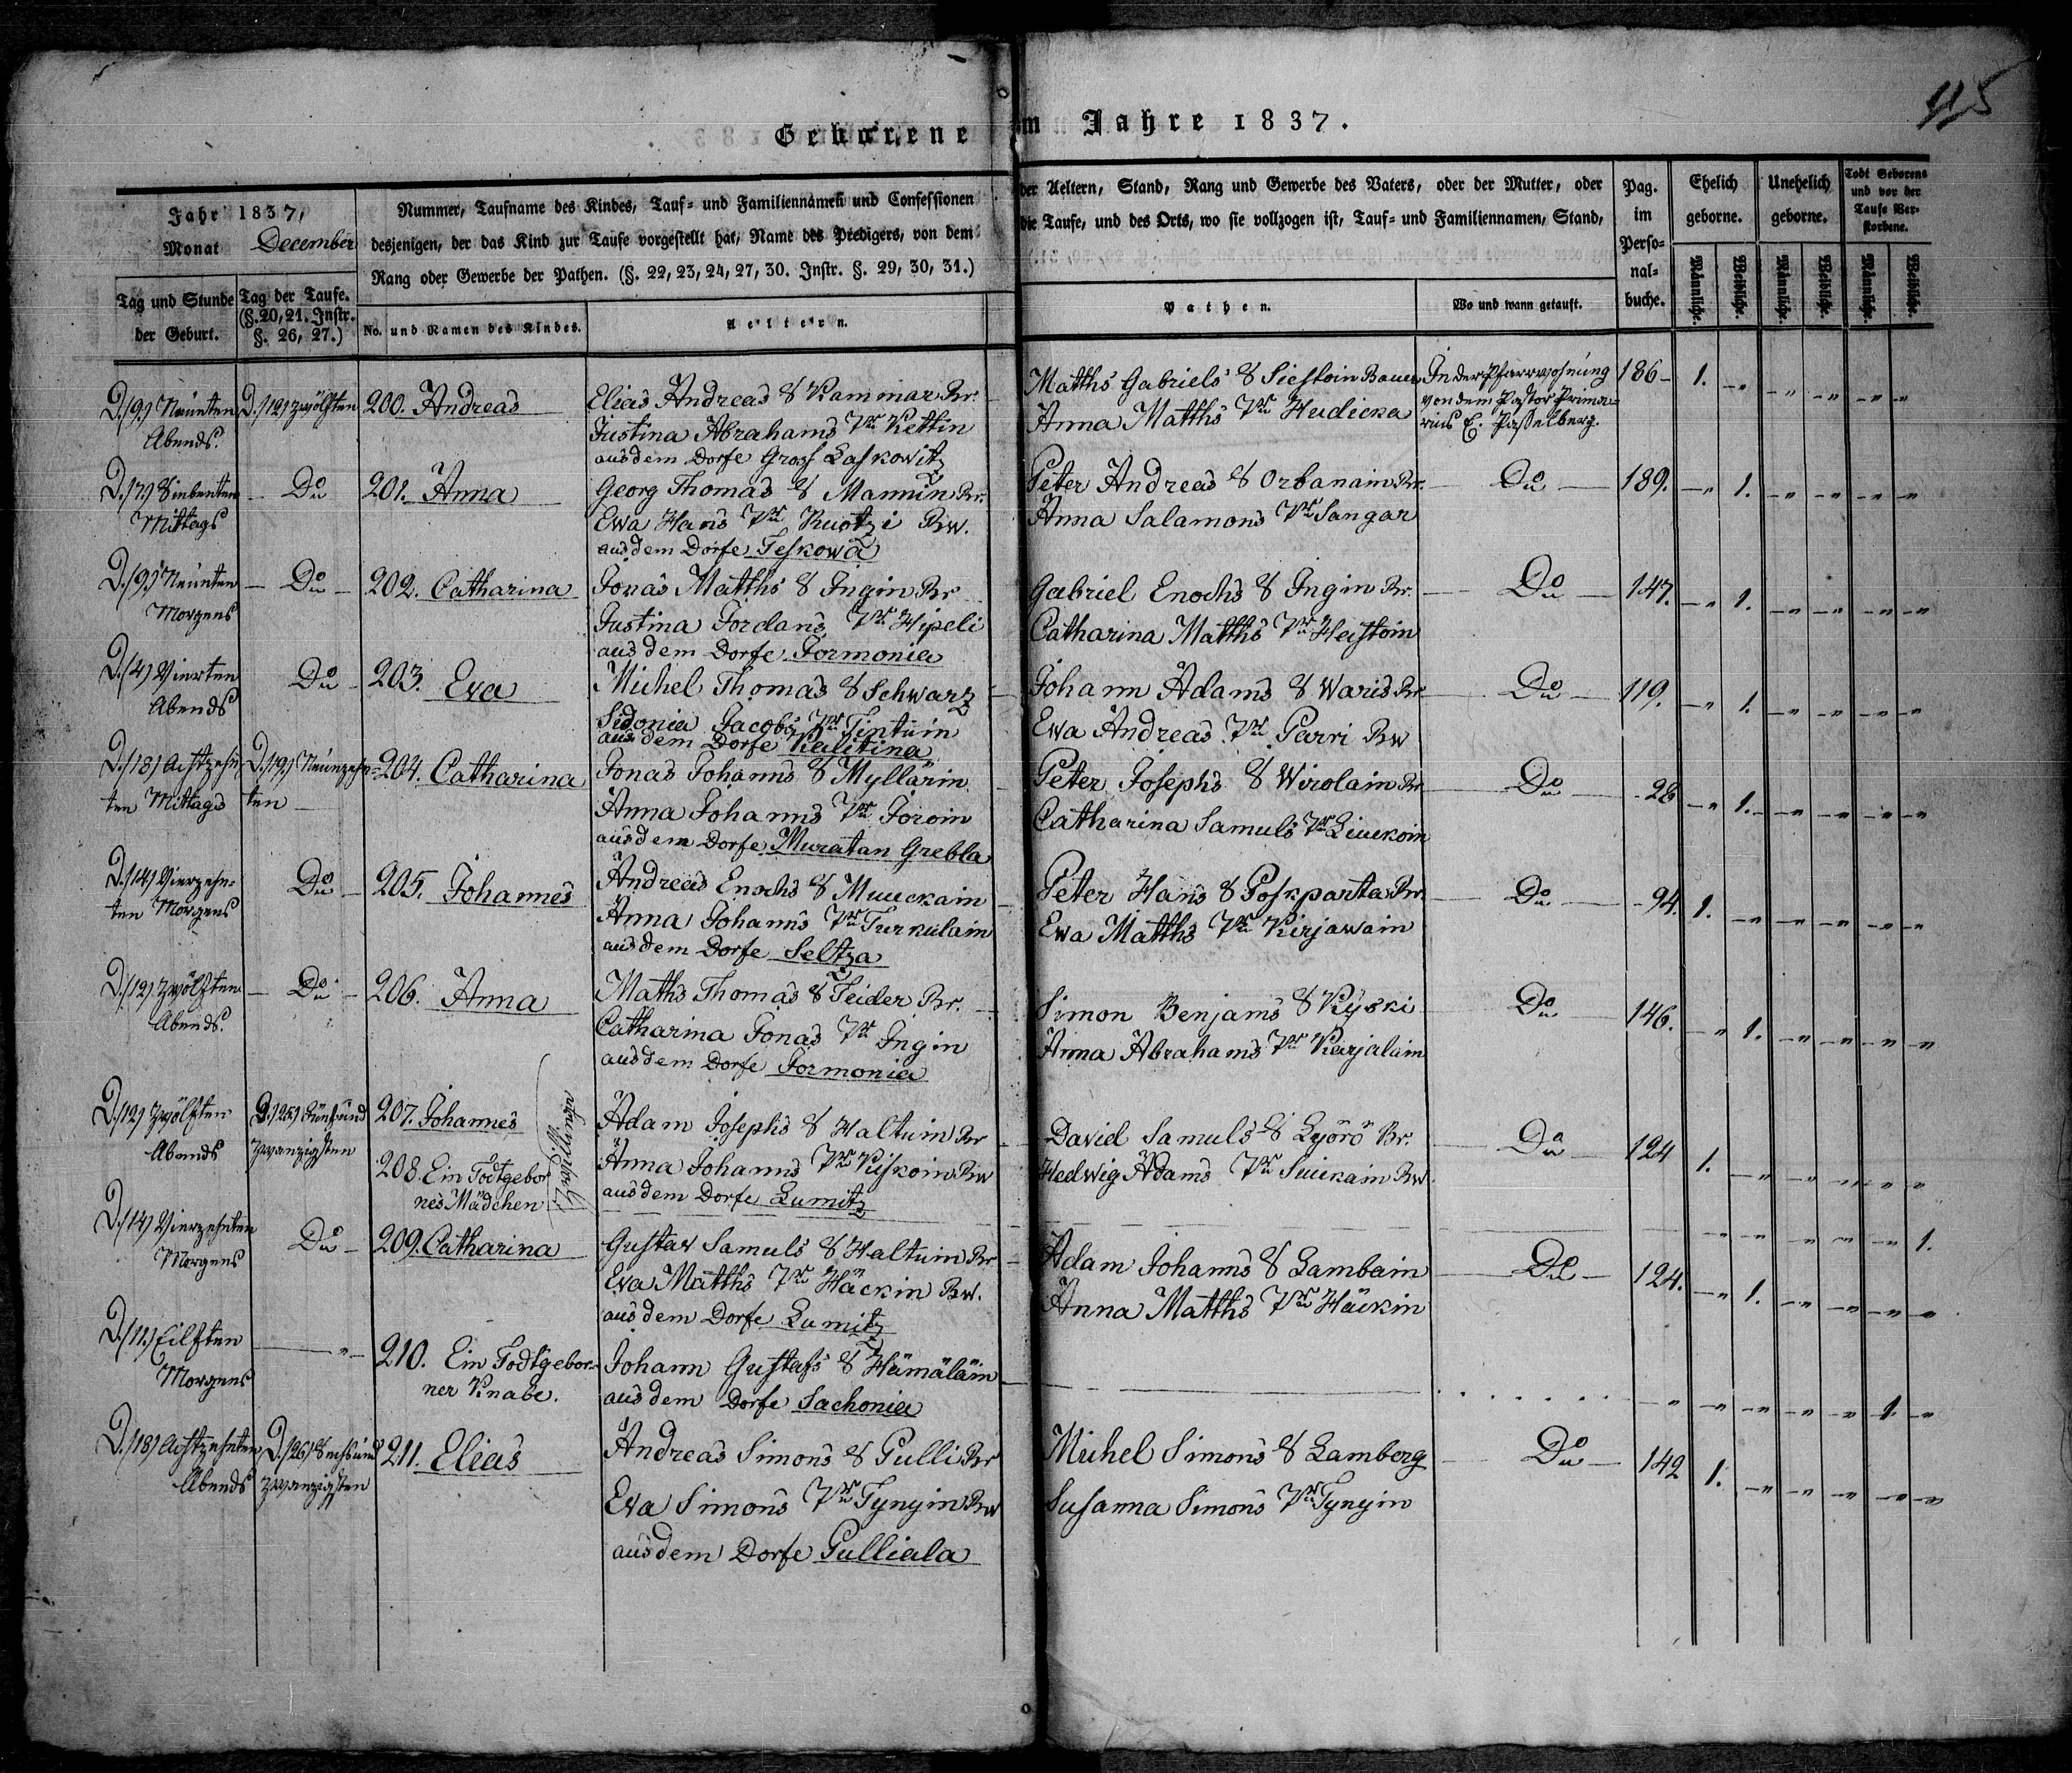 115
Geborene im Jahre 1837.
Jahr 1837,
Monat December
Tag und Stunde der Geburt.
Tag der Taufe. (§. 20, 21. Instr. §. 26, 27.)
Nummer, Taufname des Kindes, Tauf- und Familiennamen und Confessionen der Aeltern, Stand, Rang und Gewerbe des Vaters, oder der Mutter, oder
desjenigen, der das Kind zur Taufe vorgestellt hat, Name des Predigers, von dem die Taufe, und des Orts, wo sie vollzogen ist, Tauf- und Familiennamen, Stand,
Rang oder Gewerbe der Pathen. (§. 22, 23, 24, 27, 30. Instr. §. 29, 30, 31.)
No. und Namen des Kindes.
Aeltern.
Pathen.
Wo und wann getauft.
Pag. im Perso-nal-buche.
Ehelich geborne.
Unehelich geborne.
Todt Geborene und vor der Taufe Ver-storbene.
Männliche. Weibliche. Männliche. Weibliche. Männliche. Weibliche.
D. (9.) Neunten D. (12) zwölften 200. Andreas Elias Andreas S Kammar Br. Matths Gabriels S Siestoin Bauer In der Pfarrwohnung 186 1.
Abends. Justina Abrahams Tr Kettin Anna Matths Tr Hudicka von dem Pastor Prima-
aus dem Dorfe Gross Laskowitz rius E. Passelberg.
D. (7) Siebenten Do 201. Anna Georg Thomas S Mannin Br. Peter Andreas S Orbanain Br. Do 189. 1.
Mittags Ewa Hans Tr Ruotzi Bw. Anna Salamons Tr Sangar
aus dem Dorfe Teskowa
D. (9.) Neunten Do 202. Catharina Jonas Matths S Ingin Br Gabriel Enochs S Ingin Br. Do 147. 1.
Morgens Justina Jordans Tr Hipeli Catharina Matths Tr Heistoin
aus dem Dorfe Formonia
D. (4) Vierten Do 203. Eva Michel Thomas S Schwarz Johann Adams S Waris Br Do 119. 1.
Abends Sidonia Jacobs Tr Tintuin Ewa Andreas Tr Parri Bw
aus dem Dorfe Kalitina
D. (18) Achtzehn- D. (19) Neunzehn- 204. Catharina Jonas Johanns S Myllärin Peter Josephs S Wirolain Br Do 28 1.
ten Mittags ten Anna Johanns Tr Foroin Catharina Samuls Tr Liuckoin
aus dem Dorfe Muratan Grebla
D. (14) Vierzehn- Do 205. Johannes Andreas Enochs S Muuckain Peter Hans S Poskparta Br. Do 94. 1.
ten Morgens Anna Johanns Tr Turkulain Ewa Matths Tr Kirjawain
aus dem Dorfe Seltza
D. (12) zwölften Do 206. Anna Maths Thomas S Teider Br. Simon Benjams S Kyski Do 146. 1.
Abends. Catharina Jonas Tr Ingin Anna Abrahams Tr Karjalain
aus dem Dorfe Formonia
D. (12) zwölften D. (25) Fünfund 207. Johannes Zwillinge Adam Josephs S Haltuin Br David Samuls S Lyörö Br. Do 124 1.
Abends zwanzigsten 208. Ein Todtgebor- Anna Johanns Tr Piiskoin Bw Hedwig Adams Tr Suikain Bw.
nes Mädchen aus dem Dorfe Lumitz 1.
D. (14) Vierzehnten Do 209. Catharina Gustav Samuls S Haltuin Br Adam Johanns S Lambain Do 124. 1.
Morgens Eva Matths Tr Häckin Bw. Anna Matths Tr Häckin
aus dem Dorfe Lumitz
D. (11.) Eilften 210. Ein Todtgebor- Johann Gustafs S Hämäläin 1.
Morgens ner Knabe. aus dem Dorfe Sachonia
D. (18) Achtzehnten D. (26) Sechsund 211. Elias Andreas Simons S Pulli Br Michel Simons S Lamberg Do 142 1.
Abends zwanzigsten Eva Simons Tr Tynyin Bw Susanna Simons Tr Tynyin
aus dem Dorfe Pulliala